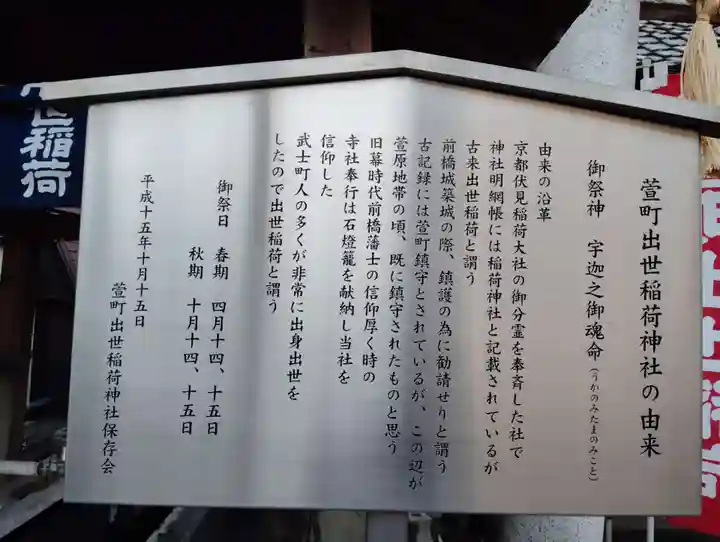 萱町出世稲荷神社の由来
御祭神　宇迦之御魂命（うかのみたまのみこと）
由来の沿革
京都伏見稲荷大社の御分霊を奉斉した社で
神社明網帳には稲荷神社と記載されているが
古来出世稲荷と謂う
前橋城築城の際、鎮護の為に勧請せりと謂う
古記録には萱町鎮守とされているが、この辺が
萱原地帯の頃、既に鎮守されたものと思う
旧幕時代前橋藩士の信仰厚く時の
寺社奉行は石燈籠を献納し当社を
信仰した
武士町人の多くが非常に出身出世を
したので出世稲荷と謂う
御祭日　春期　四月十四、十五日
秋期　十月十四、十五日
平成十五年十月十五日
萱町出世稲荷神社保存会
世稲荷